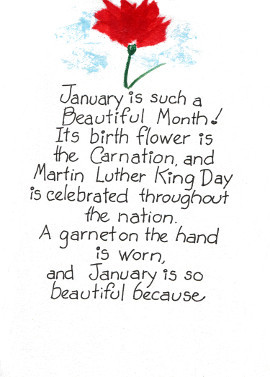 January is such a
Beautiful Month!
Its birth flower is
the Carnation, and
Martin Luther King Day
is celebrated throughout
the nation.
A garnet on the hand
is worn,
and January is so
beautiful because